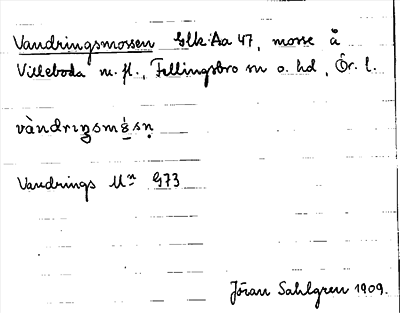 Vandringsmossen Glk:Aa 47, mosse å
Villeboda m. fl., Fellingsbro sn o. hd, Ör. l.
Vandrings Mⁿ G73
Jöran Sahlgren 1909.